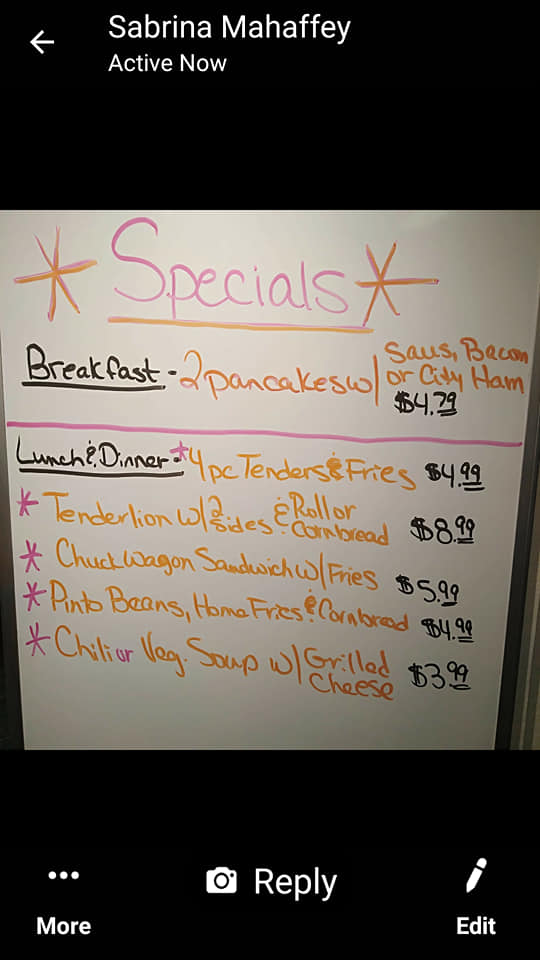 Sabrina Mahaffey
Active Now
* Specials *
Breakfast - 2 pancakes w/ Saus, Bacon
or City Ham
$4.79
Lunch & Dinner - * 4 pc Tenders & Fries $4.99
* Tenderlion w/ 2 sides & Roll or Cornbread $8.99
* Chuckwagon Sandwich w/ Fries $5.99
* Pinto Beans, Home Fries & Cornbread $4.99
* Chili or Veg. Soup w/ Grilled Cheese $3.99
Reply
More
Edit